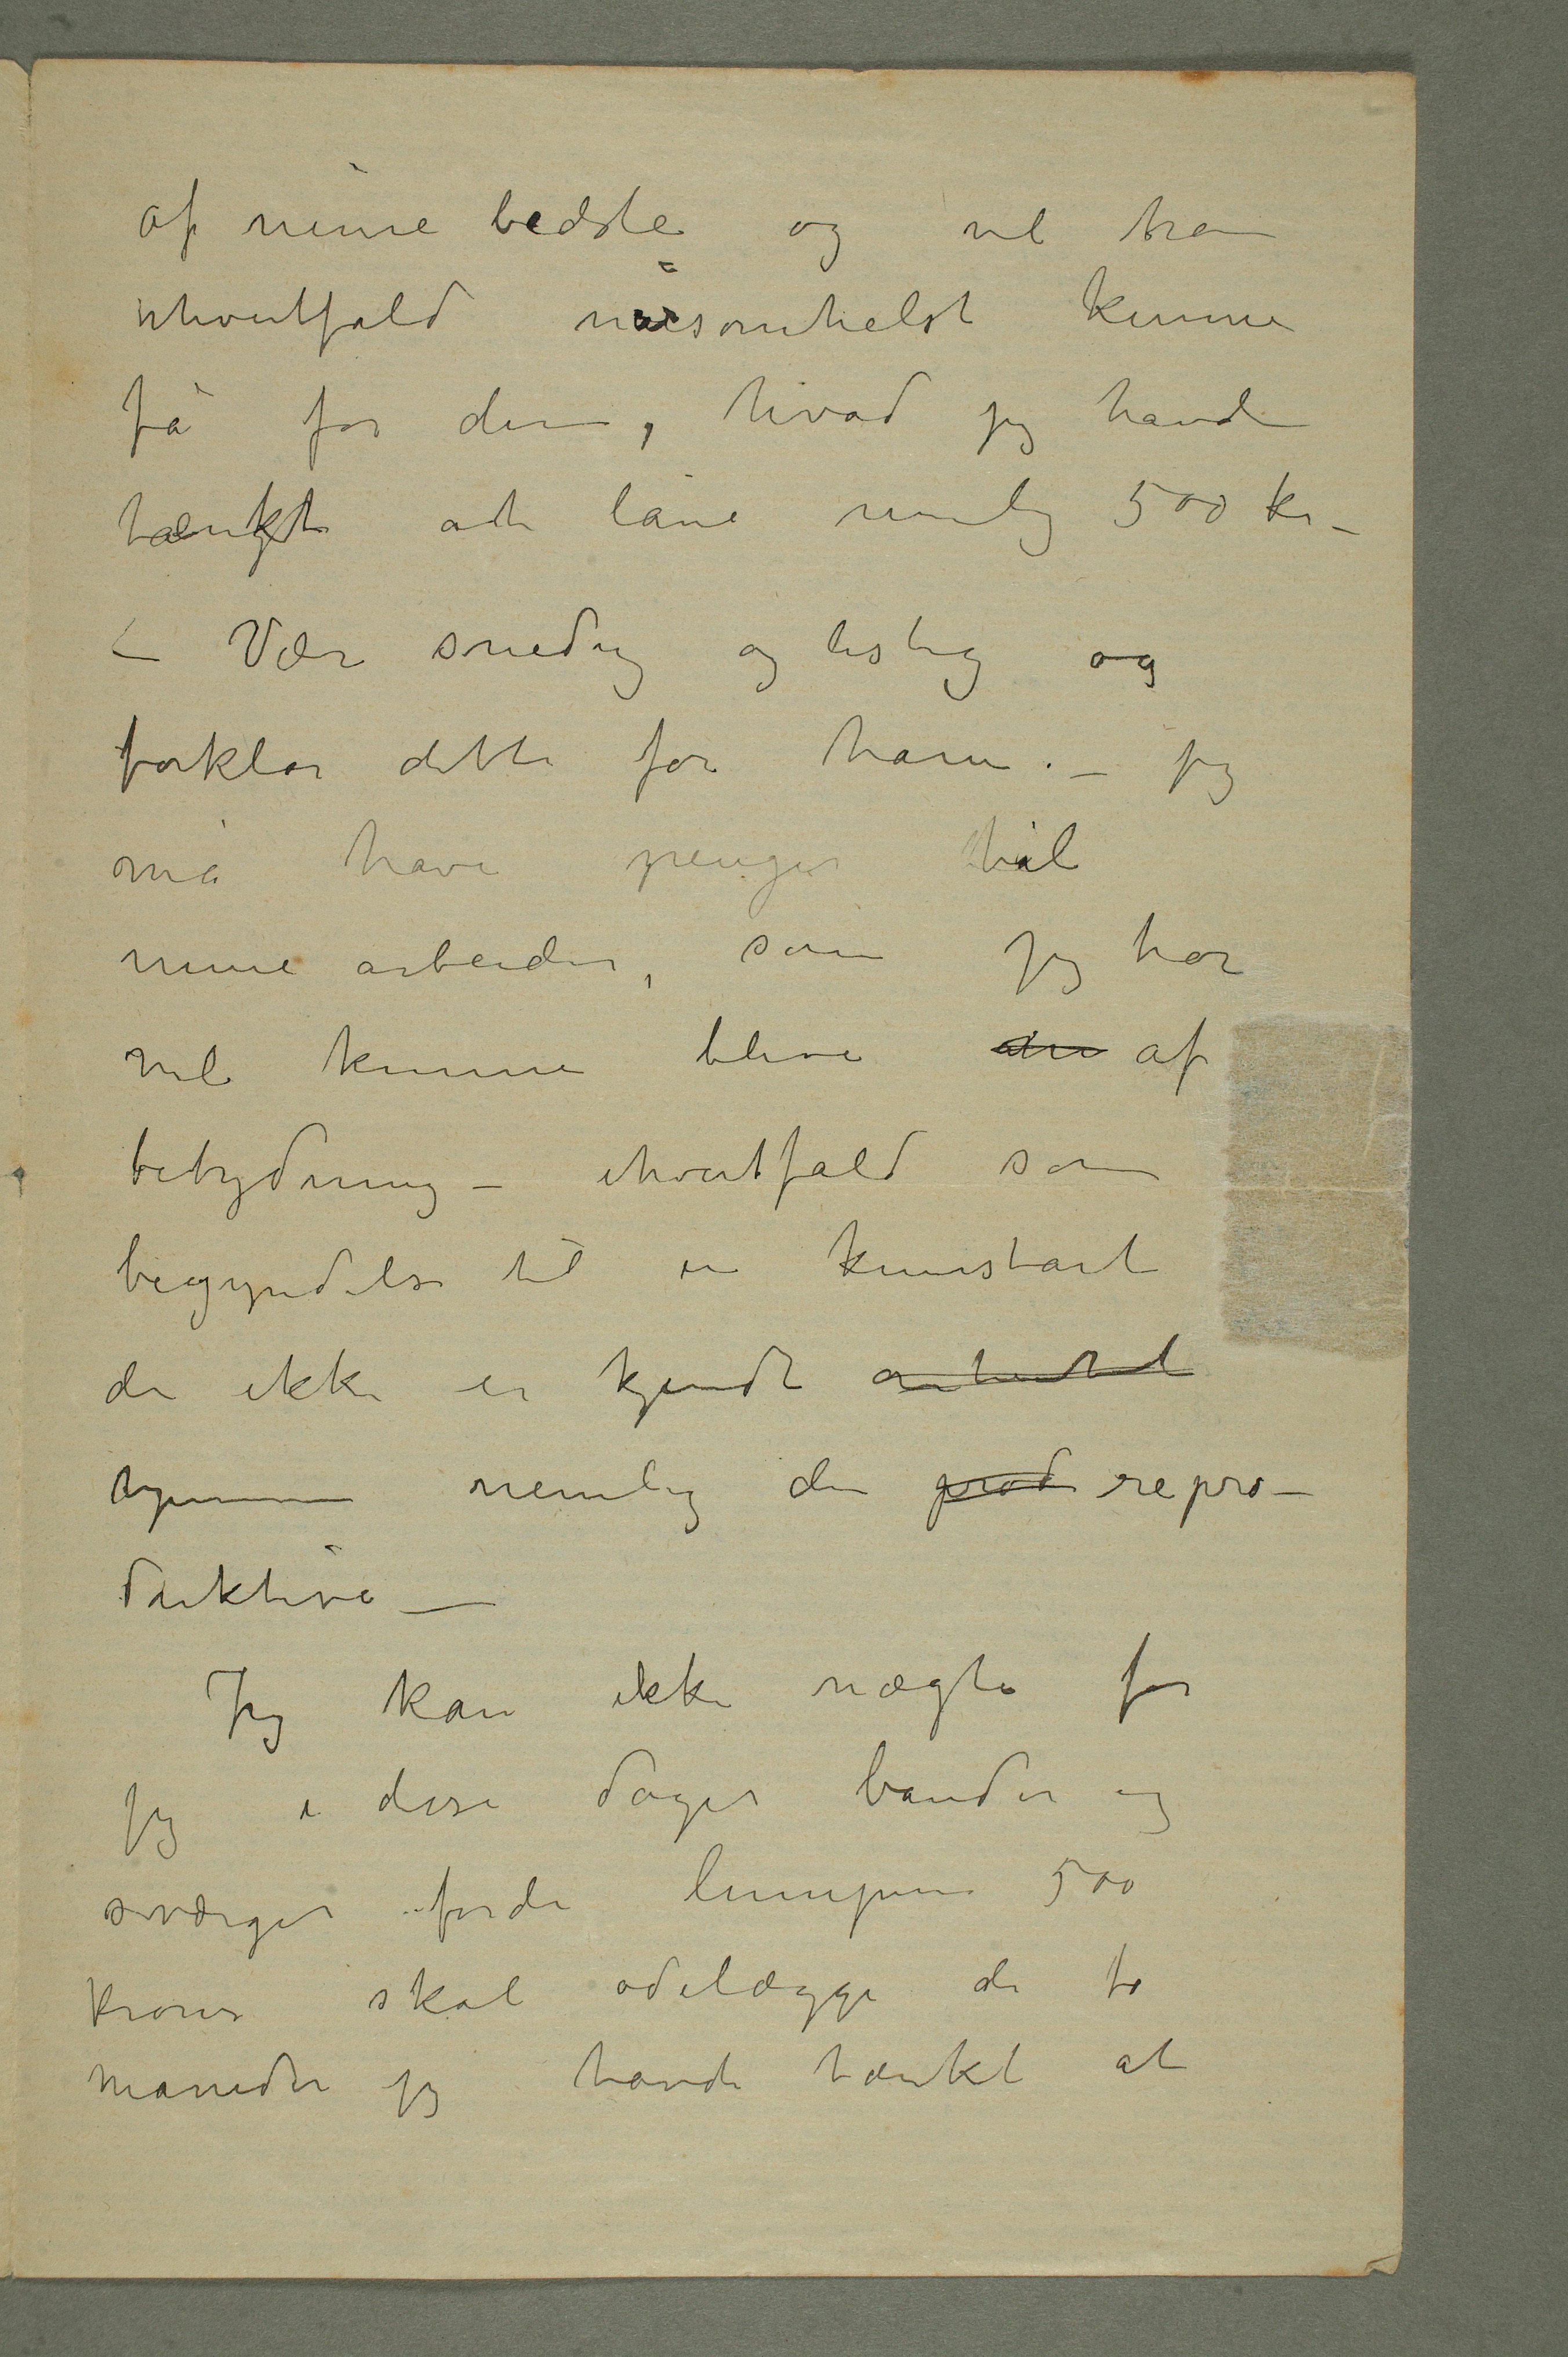 af mine bedste og vil han
ihvertfald nårsomhelst kunne
få for dem, hvad jeg havde
tænkt at låne nemlig 500 kr –
– Vær snedig og listig og
forklar dette for ham. – jeg
må have penger til
mine arbeider, som jeg tror
vil kunne blive af
betydning – ihvertfald som
begyndelse til en kunstart
der ikke er kjendt
hjemme nemlig den repro–
duktive –
Jeg kan ikke nægte for
jeg i disse dager bander og
sværger fordi lumpne 500
kroner skal ødelægge de to
måneder jeg havde tænkt at